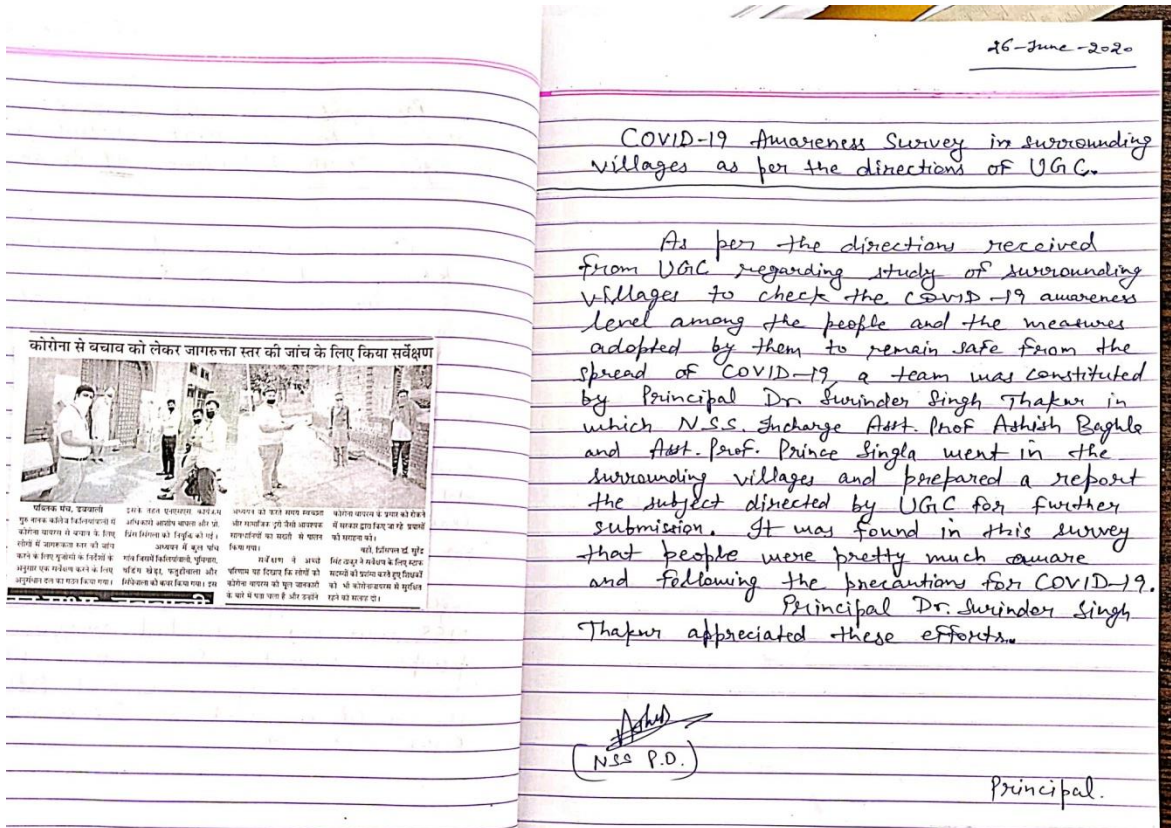 कोरोना से बचाव को लेकर जागरुक्ता स्तर की जांच के लिए किया सर्वेक्षण
पब्लिक मंच, डबवाली
गुरु नानक कॉलेज किलियांवाली में
कोरोना वायरस से बचाव के लिए
लोगों में जागरूकता स्तर की जांच
करने के लिए यूजीसी के निर्देशों के
अनुसार एक सर्वेक्षण करने के लिए
अनुसंधान दल का गठन किया गया।
इसके तहत एनएसएस कार्यक्रम
अधिकारी आशीष बाघला और प्रो.
प्रिंस सिंगला को नियुक्ति की गई।
अध्ययन में कुल पांच
गांव जिसमें किलियांवाली,
खेड़ा, फतूहीवाला और
सिंघेवाला को कवर किया गया। इस
अध्ययन को करते समय स्वच्छता
और सामाजिक दूरी जैसी आवश्यक
सावधानियों का सख्ती से पालन
किया गया।
सर्वेक्षण ने अच्छे
परिणाम यह दिखाए कि लोगों को
कोरोना वायरस की मूल जानकारी
के बारे में पता चला है और उन्होंने
कोरोना वायरस के प्रसार को रोकने
में सरकार द्वारा किए जा रहे प्रयासों
की सराहना की।
वहीं, प्रिंसिपल डॉ. सुरेंद्र
सिंह ठाकुर ने सर्वेक्षण के लिए स्टाफ
सदस्यों की प्रशंसा करते हुए शिक्षकों
को भी कोरोनावायरस से सुरक्षित
रहने की सलाह दी।
26-June-2020
COVID-19 Awareness Survey in surrounding
villages as per the directions of UGC.
As per the directions received
from UGC regarding study of surrounding
villages to check the COVID-19 awareness
level among the people and the measures
adopted by them to remain safe from the
spread of COVID-19, a team was constituted
by Principal Dr. Surinder Singh Thakur in
which N.S.S. Incharge Asst. Prof Ashish Baghla
and Asst. Prof. Prince Singla went in the
surrounding villages and prepared a report
the subject directed by UGC for further
submission. It was found in this survey
that people were pretty much aware
and following the precautions for COVID-19.
Principal Dr. Surinder Singh
Thakur appreciated these efforts.
(NSS P.O.)
Principal.